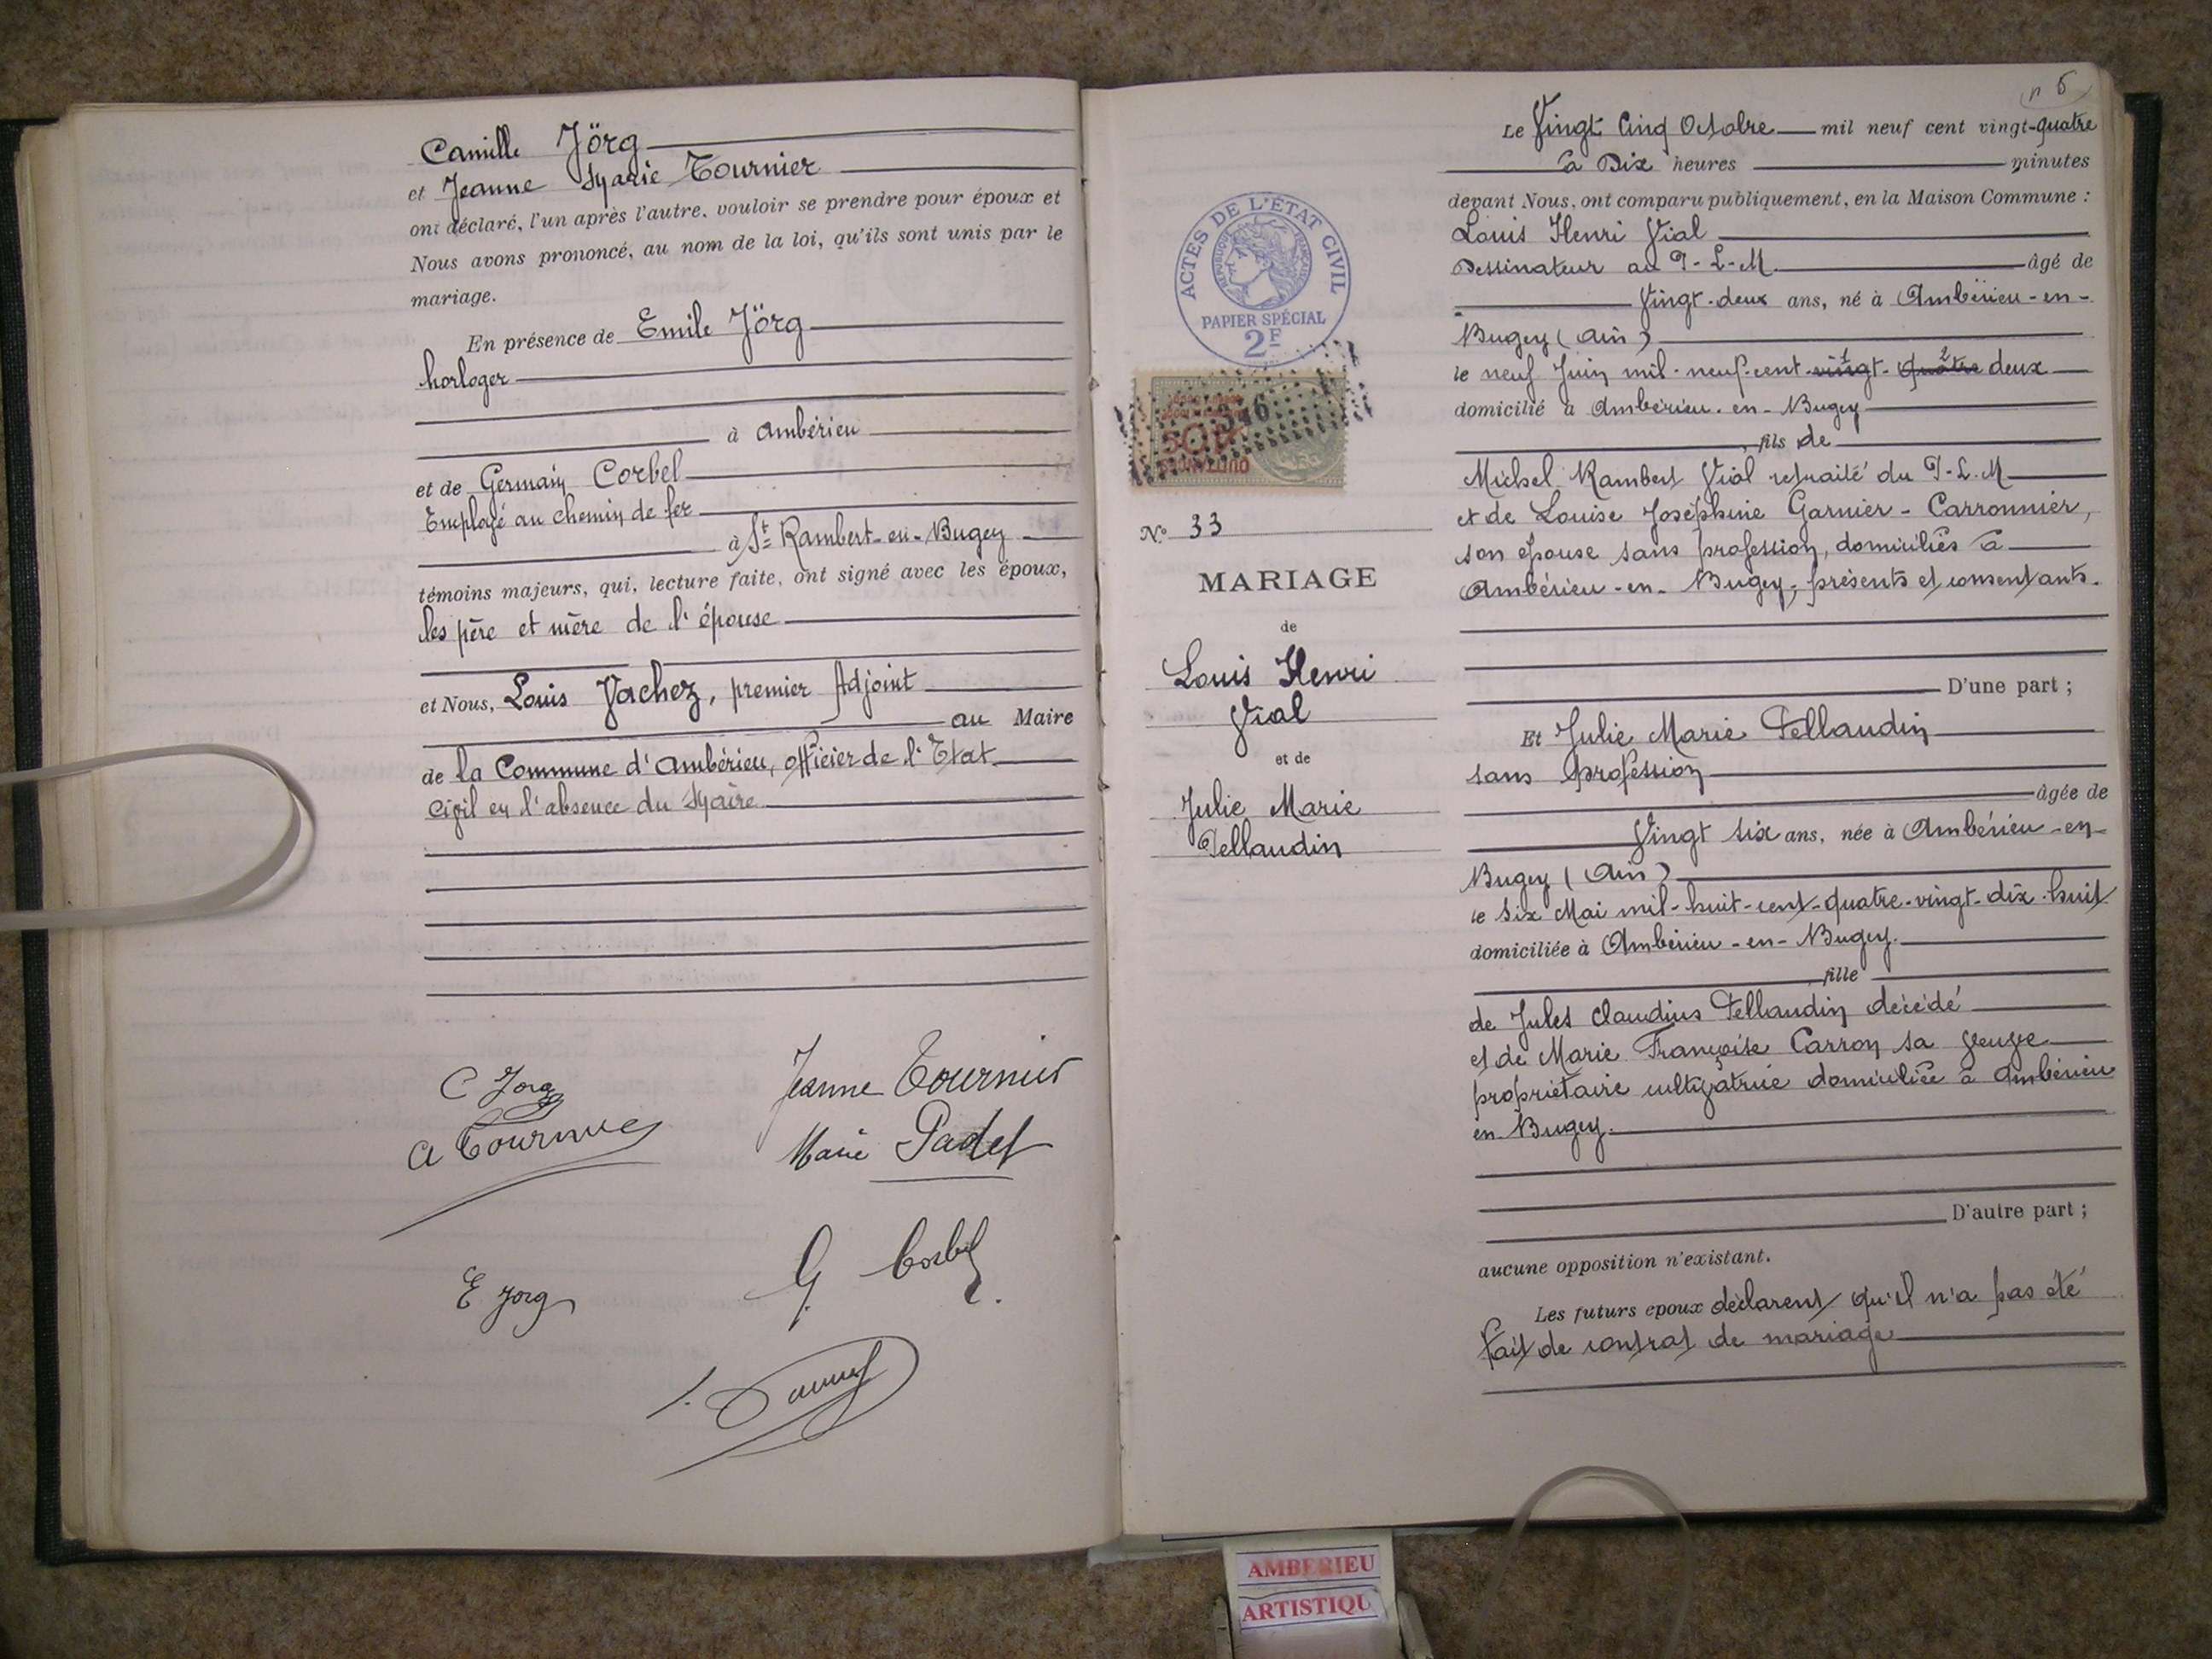 Camille Jörg
et Jeanne Marie Tournier
ont déclaré, l'un après l'autre, vouloir se prendre pour époux et
Nous avons prononcé, au nom de la loi, qu'ils sont unis par le
mariage.
En présence de Emile Jörg
horloger
à Ambérieu
et de Germain Corbel
Employé au chemin de fer
à St Rambert-en-Bugey
témoins majeurs, qui, lecture faite, ont signé avec les époux,
les père et mère de l'épouse
et Nous, Louis Vachez, premier Adjoint
au Maire
de la Commune d'Ambérieu, officier de l'Etat
Civil en l'absence du Maire
C Jorg
Jeanne Tournier
A Tournier
Marie Padet
E Jorg
G. Corbel
n 6
ACTES DE L'ÉTAT CIVIL
RÉPUBLIQUE FRANÇAISE
PAPIER SPÉCIAL
2F
N° 33
MARIAGE
de
Louis Henri
Vial
et de
Julie Marie
Pellaudin
Le Vingt Cinq Octobre mil neuf cent vingt-quatre
à Dix heures minutes
devant Nous, ont comparu publiquement, en la Maison Commune :
Louis Henri Vial
Dessinateur au P-L-M. âgé de
Vingt-deux ans, né à Ambérieu-en-
Bugey (Ain)
le neuf Juin mil-neuf-cent-vingt-quatre deux
domicilié à Ambérieu-en-Bugey
, fils de
Michel Rambert Vial retraité du P-L-M
et de Louise Joséphine Garnier-Carronnier,
son épouse sans profession, domiciliés à
Ambérieu-en-Bugey, présents et consentants.
D'une part ;
Et Julie Marie Pellaudin
sans profession
âgée de
Vingt six ans, née à Ambérieu-en-
Bugey (Ain)
le Six Mai mil-huit-cent-quatre-vingt-dix-huit
domiciliée à Ambérieu-en-Bugey.
, fille
de Jules Claudius Pellaudin décédé
et de Marie Françoise Carron sa veuve
propriétaire cultivatrice domiciliée à Ambérieu
en-Bugey.
D'autre part ;
aucune opposition n'existant.
Les futurs époux déclarent qu'il n'a pas été
fait de contrat de mariage
AMBERIEU
ARTISTIQU